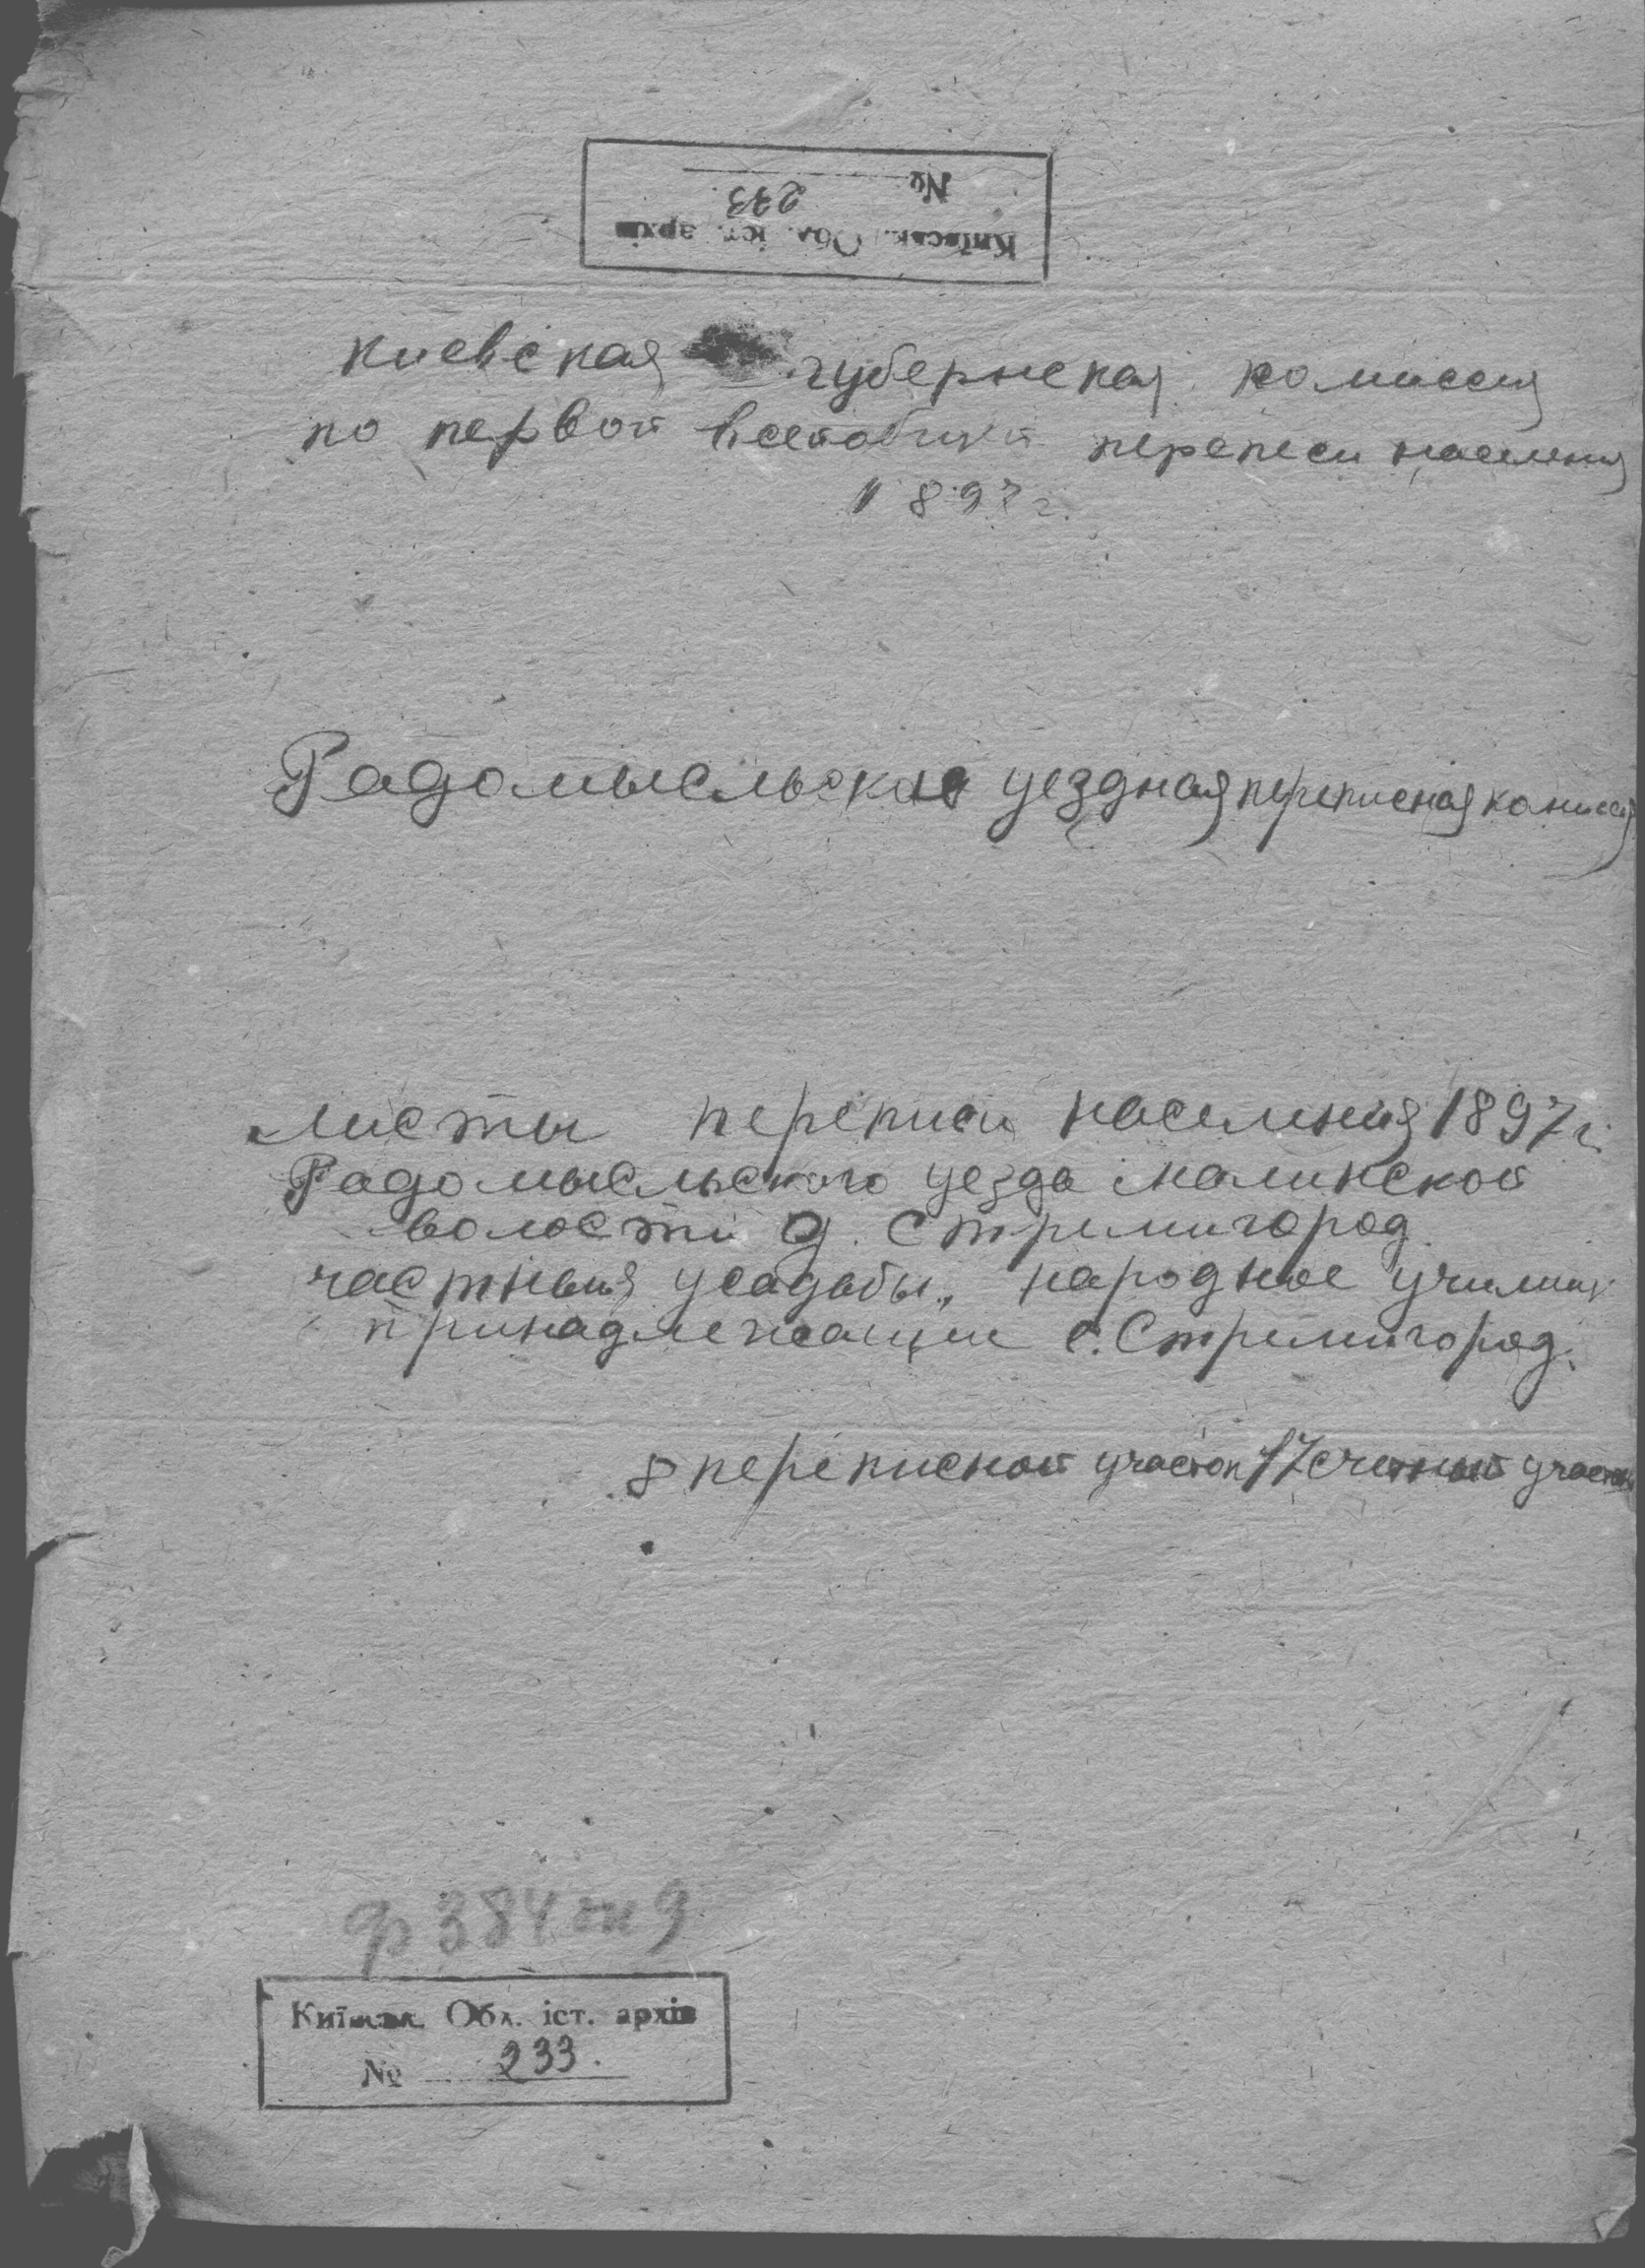 Київськ. Обл. іст. архів
№ 273.
Киевская губернская комиссия
по первой всеобщей переписи населения
1897 г.
Радомысльская уездная переписная комиссия
Листы переписи населения 1897 г.
Радомысльского уезда Малинской
волости д. Стремигород
частныя усадьбы, народное училищ
принадлежащие с. Стремигород.
8 переписной участок 17 счетный участок
ф 384 оп 9
Київськ. Обл. іст. архів
№ 233.